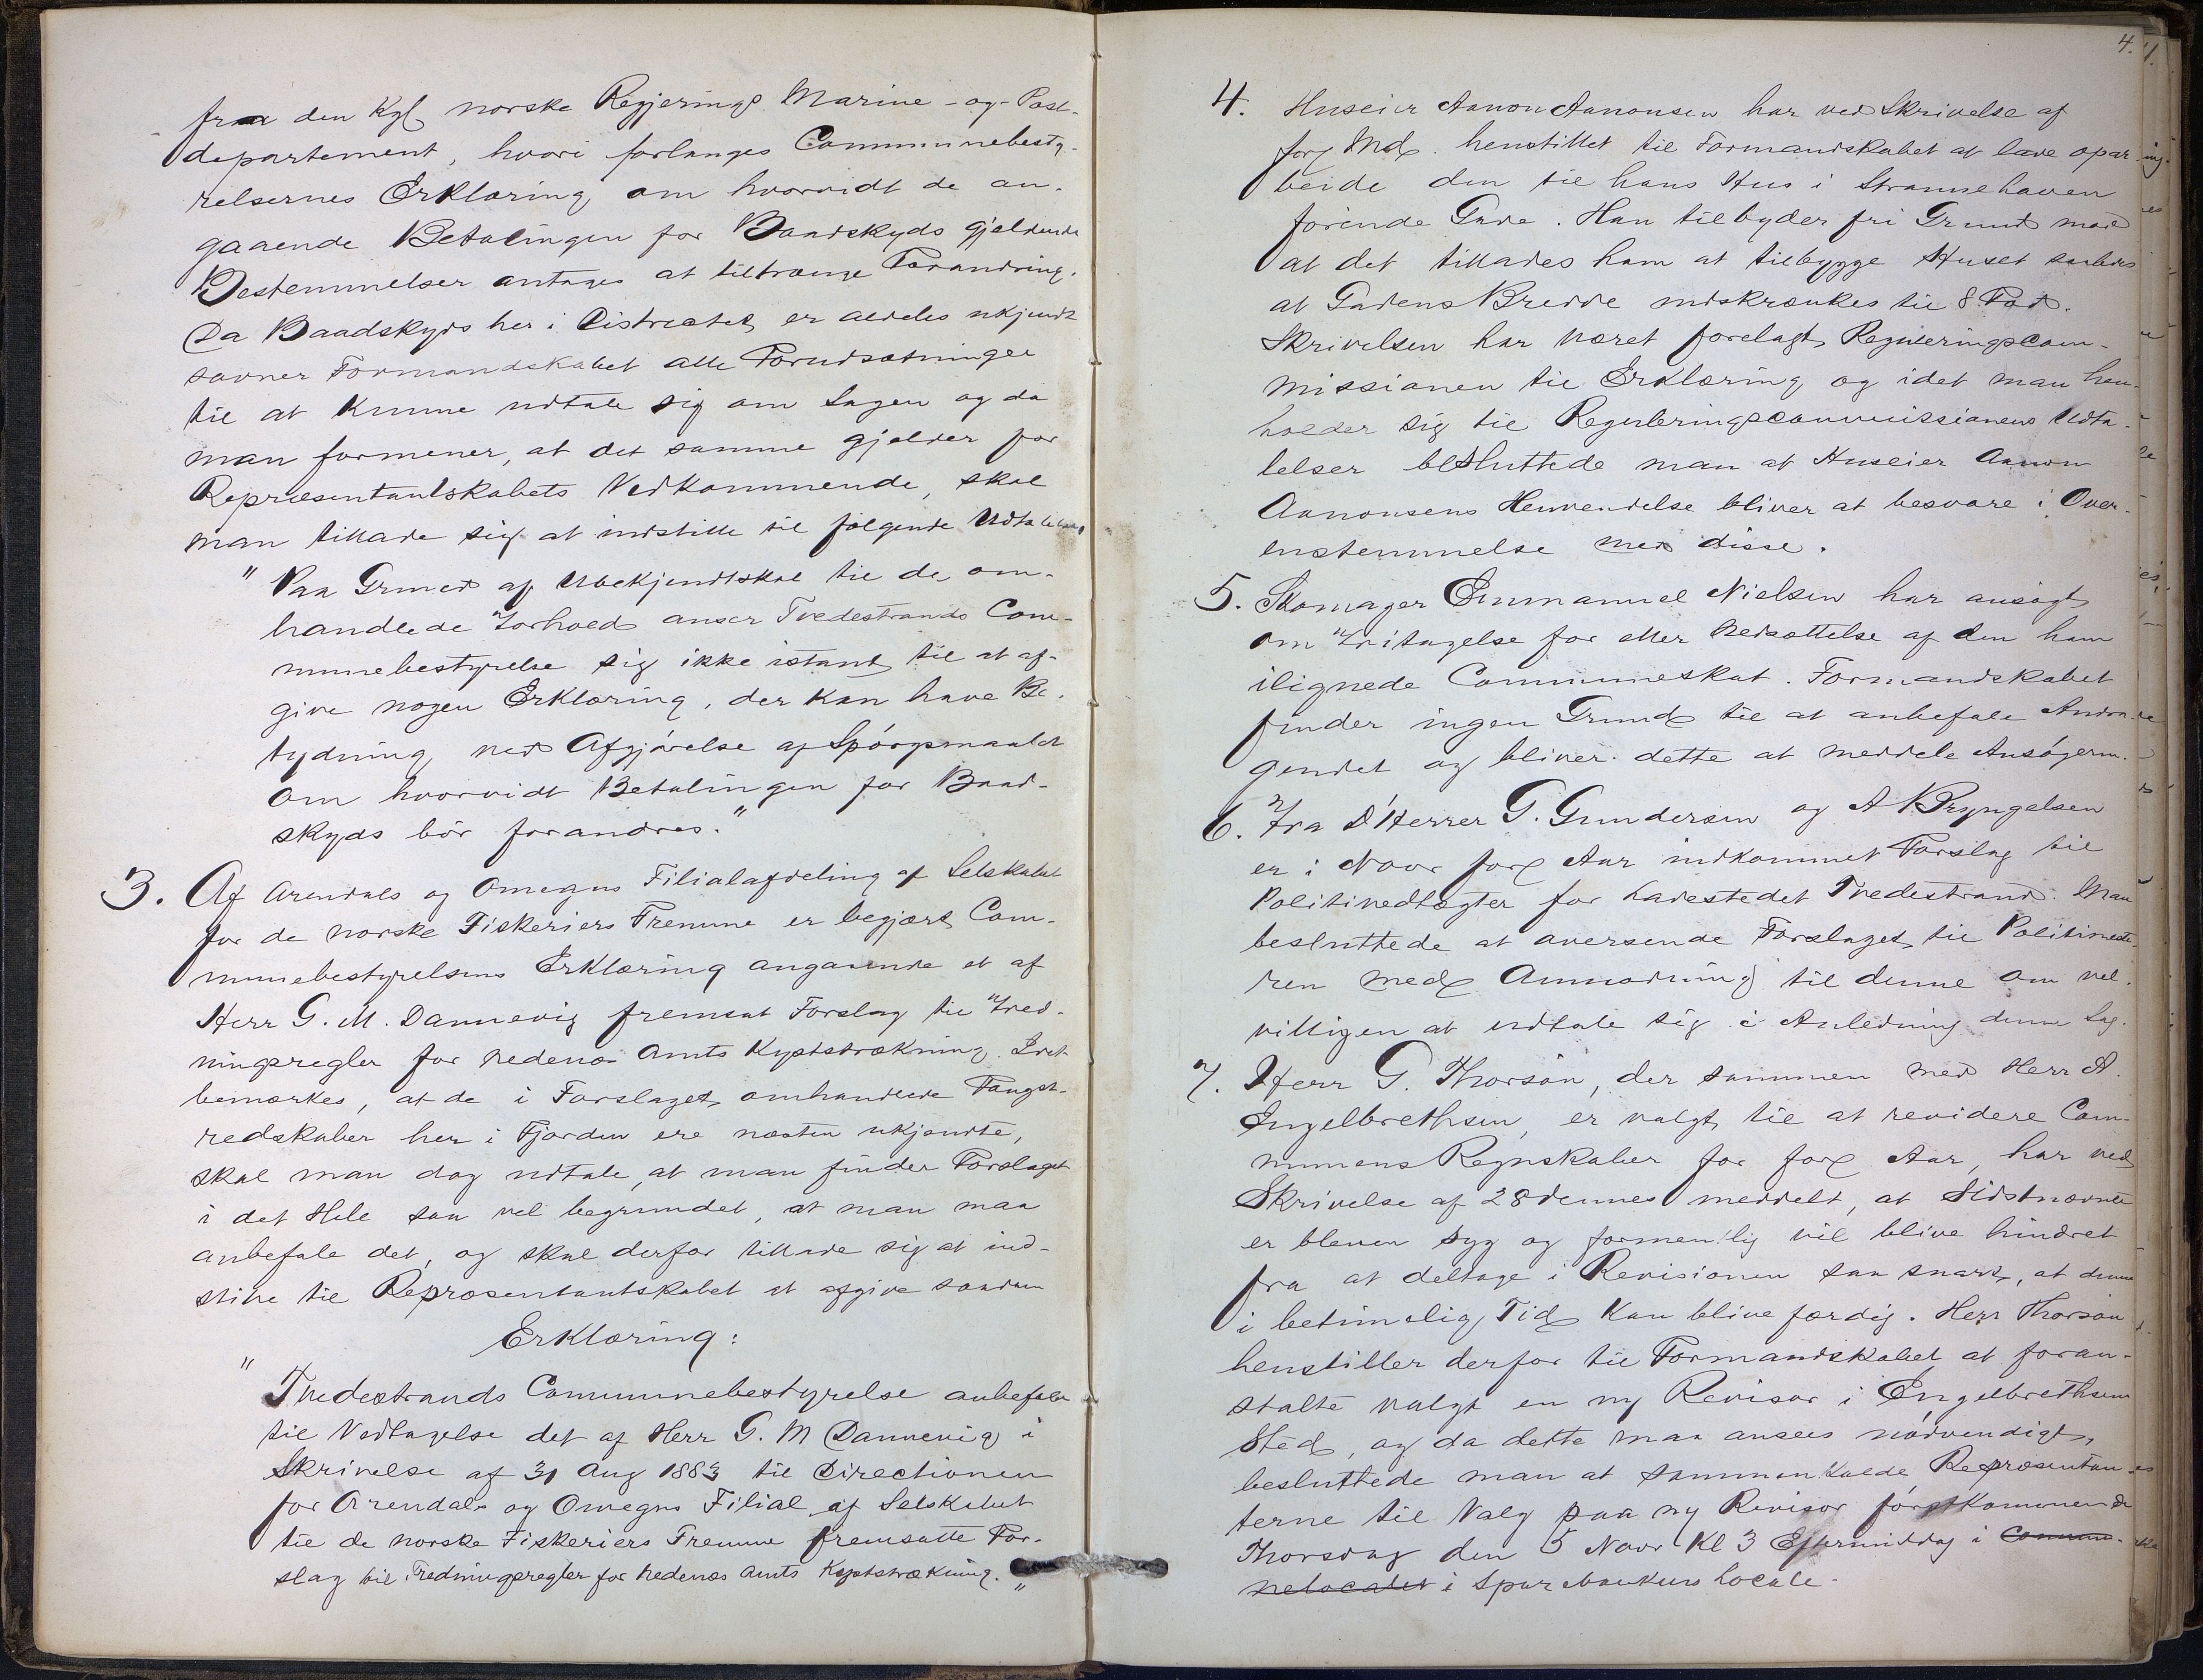 fra den Kgl norske Regjerings Marine-og-Post-
departement, hvori forlanges Communebesty-
relsernes Erklæring om hvorvidt de an-
gaaende Betalingen for Baadskyds gjeldende
Bestemmelser antages at tiltrænge Forandring.
Da Baadskyds her i Districtet er aldeles ukjendt
savner Formandskabet alle Forudsætninger
til at kunne udtale sig om Sagen og da
man formener, at det samme gjelder for
Repræsentantskabets Vedkommende, skal
man tillade sig at indstille til følgende Udtalelse
" Paa Grund af Ubekjendtskab til de om-
handlede Forhold anser Tvedestrands Com-
munebestyrelse sig ikke istand til at af-
give nogen Erklæring, der kan have Be-
tydning ved Afgjørelse af Spørgsmaalet
om hvorvidt Betalingen for Baad-
skyds bør forandres."
3. Af Arendals og Omegns Filialafdeling af Selskabet
for de norske Fiskeriers Fremme er begjært Com-
munebestyrelsens Erklæring angaaende et af
Herr G. M. Dannevig fremsat Forslag til Fred-
ningsregler for Nedenæs Amts Kyststrækning. Idet
bemærkes, at de i Forslaget omhandlede Fangst-
redskaber her i Fjorden ere næsten ukjendte,
skal man dog udtale, at man finder Forslaget
i det Hele saa vel begrundet, at man maa
anbefale det, og skal derfor tillade sig at ind-
stille til Repræsentantskabet at afgive saadan
Erklæring:
" Tvedestrands Communebestyrelse anbefaler
til Vedtagelse det af Herr G. M Dannevig i
Skrivelse af 31 Aug 1883 til Directionen
for Arendals og Omegns Filial af Selskabet
til de norske Fiskeriers Fremme fremsatte For-
slag til Fredningsregler for Nedenæs Amts Kyststrækning."
4.
4. Huseier Aanon Aanonsen har ved Skrivelse af
forg Md. henstillet til Formandskabet at lade opar-
beide den til hans Hus i Strannehaven
førende Gade. Han tilbyder fri Grund mod
at det tillades ham at tilbygge Huset saaledes
at Gadens Bredde indskrænkes til 8 Fod.
Skrivelsen har været forelagt Reguleringscom-
missionen til Erklæring og idet man hen-
holder sig til Reguleringscommissionens Udta-
lelser besluttede man at Huseier Aanon
Aanonsens Henvendelse bliver at besvare i Over-
enstemmelse med disse.
5. Skomager Emmanuel Nielsen har ansøgt
om Fritagelse for eller Nedsættelse af den ham
ilignede Communeskat. Formandskabet
finder ingen Grund til at anbefale Andra-
gendet og bliver dette at meddele Ansøgeren.
6. Fra D'Herrer G. Gundersen og A Bryngelsen
er i Novr forg Aar indkommet Forslag til
Politivedtægter for Ladestedet Tvedestrand. Man
besluttede at oversende Forslaget til Politimeste-
ren med Anmodning til denne om vel-
villigen at udtale sig i Anledning denne Sag.
7. Herr G. Thorsøn, der sammen med Herr A.
Engelbrethsen, er valgt til at revidere Com-
munens Regnskaber for forg Aar, har ved
Skrivelse af 28 dennes meddelt, at Sidstnævnte
er bleven syg og formentlig vil blive hindret
fra at deltage i Revisionen saa snart, at denne
i betimelig Tid kan blive færdig. Herr Thorsøn
henstiller derfor til Formandskabet at foran-
stalte valgt en ny Revisor i Engelbrethsens
Sted, og da dette maa ansees nødvendigt,
besluttede man at sammenkalde Repræsentan-
terne til Valg paa ny Revisor førstkommende
Thorsdag den 5 Novr Kl 3 Eftermiddag i Commu-
nelocalet i Sparebankens Locale.